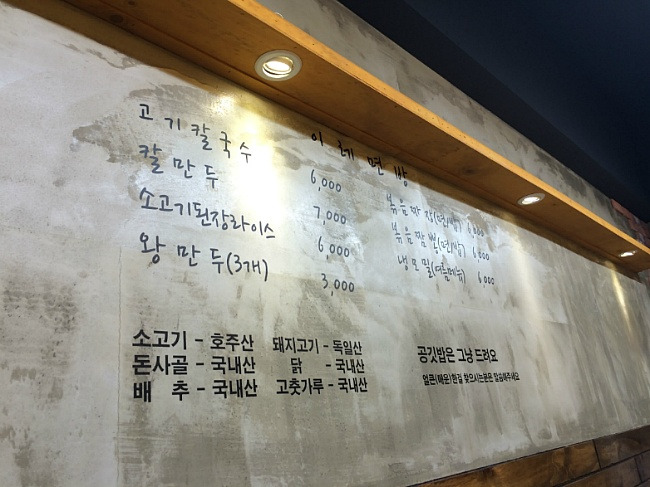 이네면방
고기칼국수 6,000
칼만두 7,000
소고기된장라이스 6,000
왕만두(3개) 3,000
볶음짜장(면/밥) 6,000
볶음짬뽕(면/밥) 6,000
냉모밀(여름메뉴) 6,000
소고기 - 호주산 돼지고기 - 독일산
돈사골 - 국내산 닭 - 국내산
배 추 - 국내산 고춧가루 - 국내산
공깃밥은 그냥 드려요
얼큰(매운)한걸 찾으시는분은 말씀해주세요